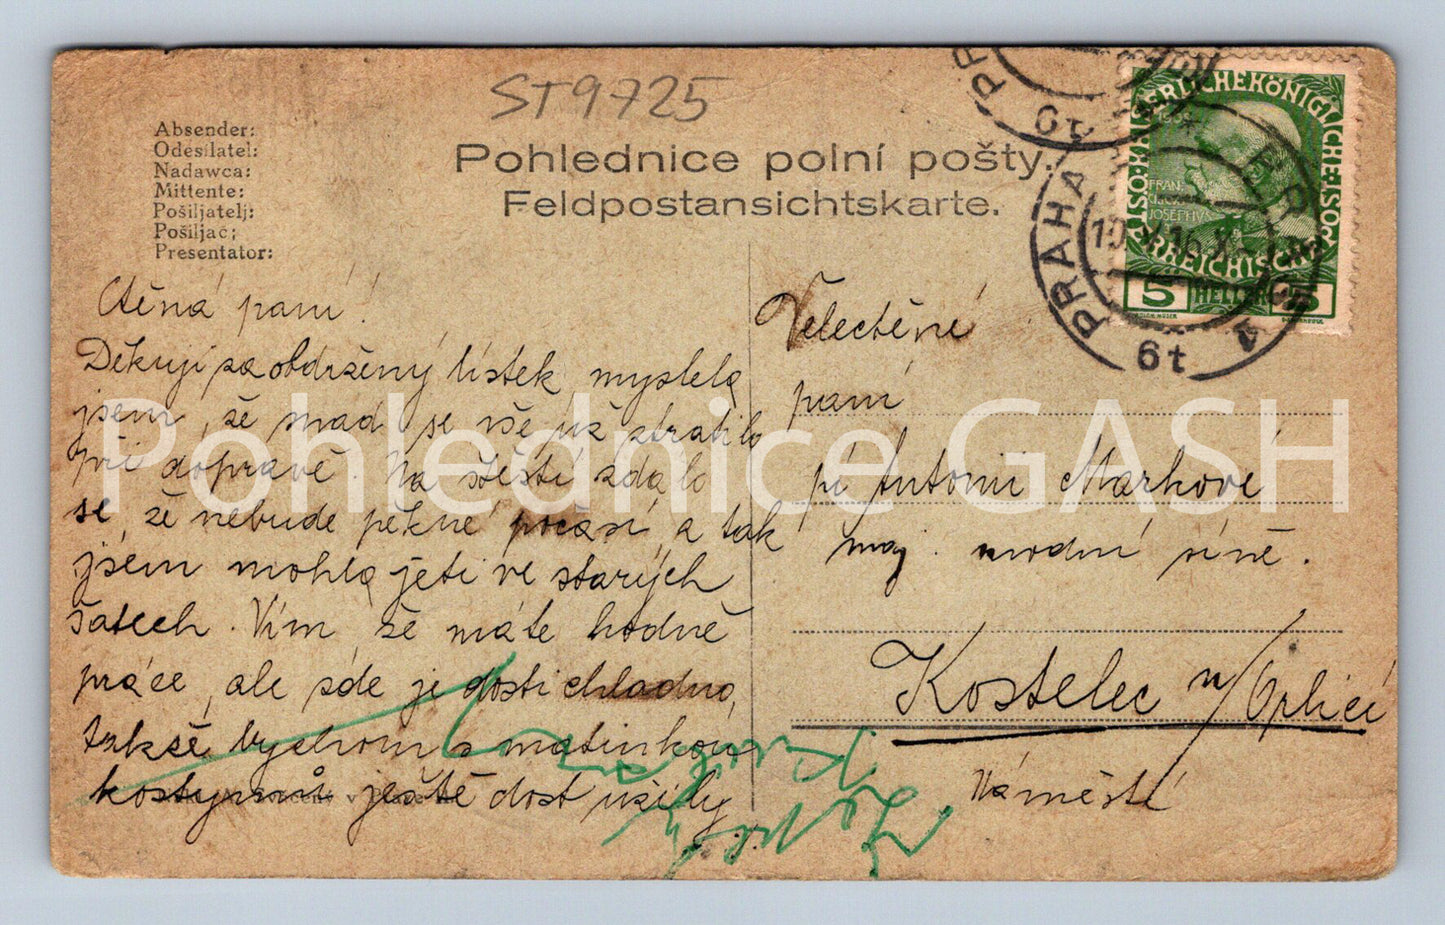 ST9725
Absender:
Odesílatel:
Nadawca:
Mittente:
Pošiljatelj:
Pošiljač:
Presentator:
Pohlednice polní pošty.
Feldpostansichtskarte.
PRAHA
6t
PRAHA 1
10.V.16.X
6t
KAISERLICHEKÖNIGLICHE
REICHISCHE
FRAN
JOSEPHVS
5 HELLER 5
Ctěná paní!
Děkuji za obdržený lístek myslela
jsem, že snad se vše už ztratilo
při dopravě. Na štěstí zdálo
se, že nebude pěkné počasí a tak
jsem mohla jeti ve starých
šatech. Vím, že máte hodně
práce, ale zde je dosti chladno,
takže bychom s matinkou
kostymů ještě dost užily
Velectěné
paní
pí Antonii Markové
maj. modní síně.
Kostelec n/Orlicí
Náměstí
Pohlednice GASH